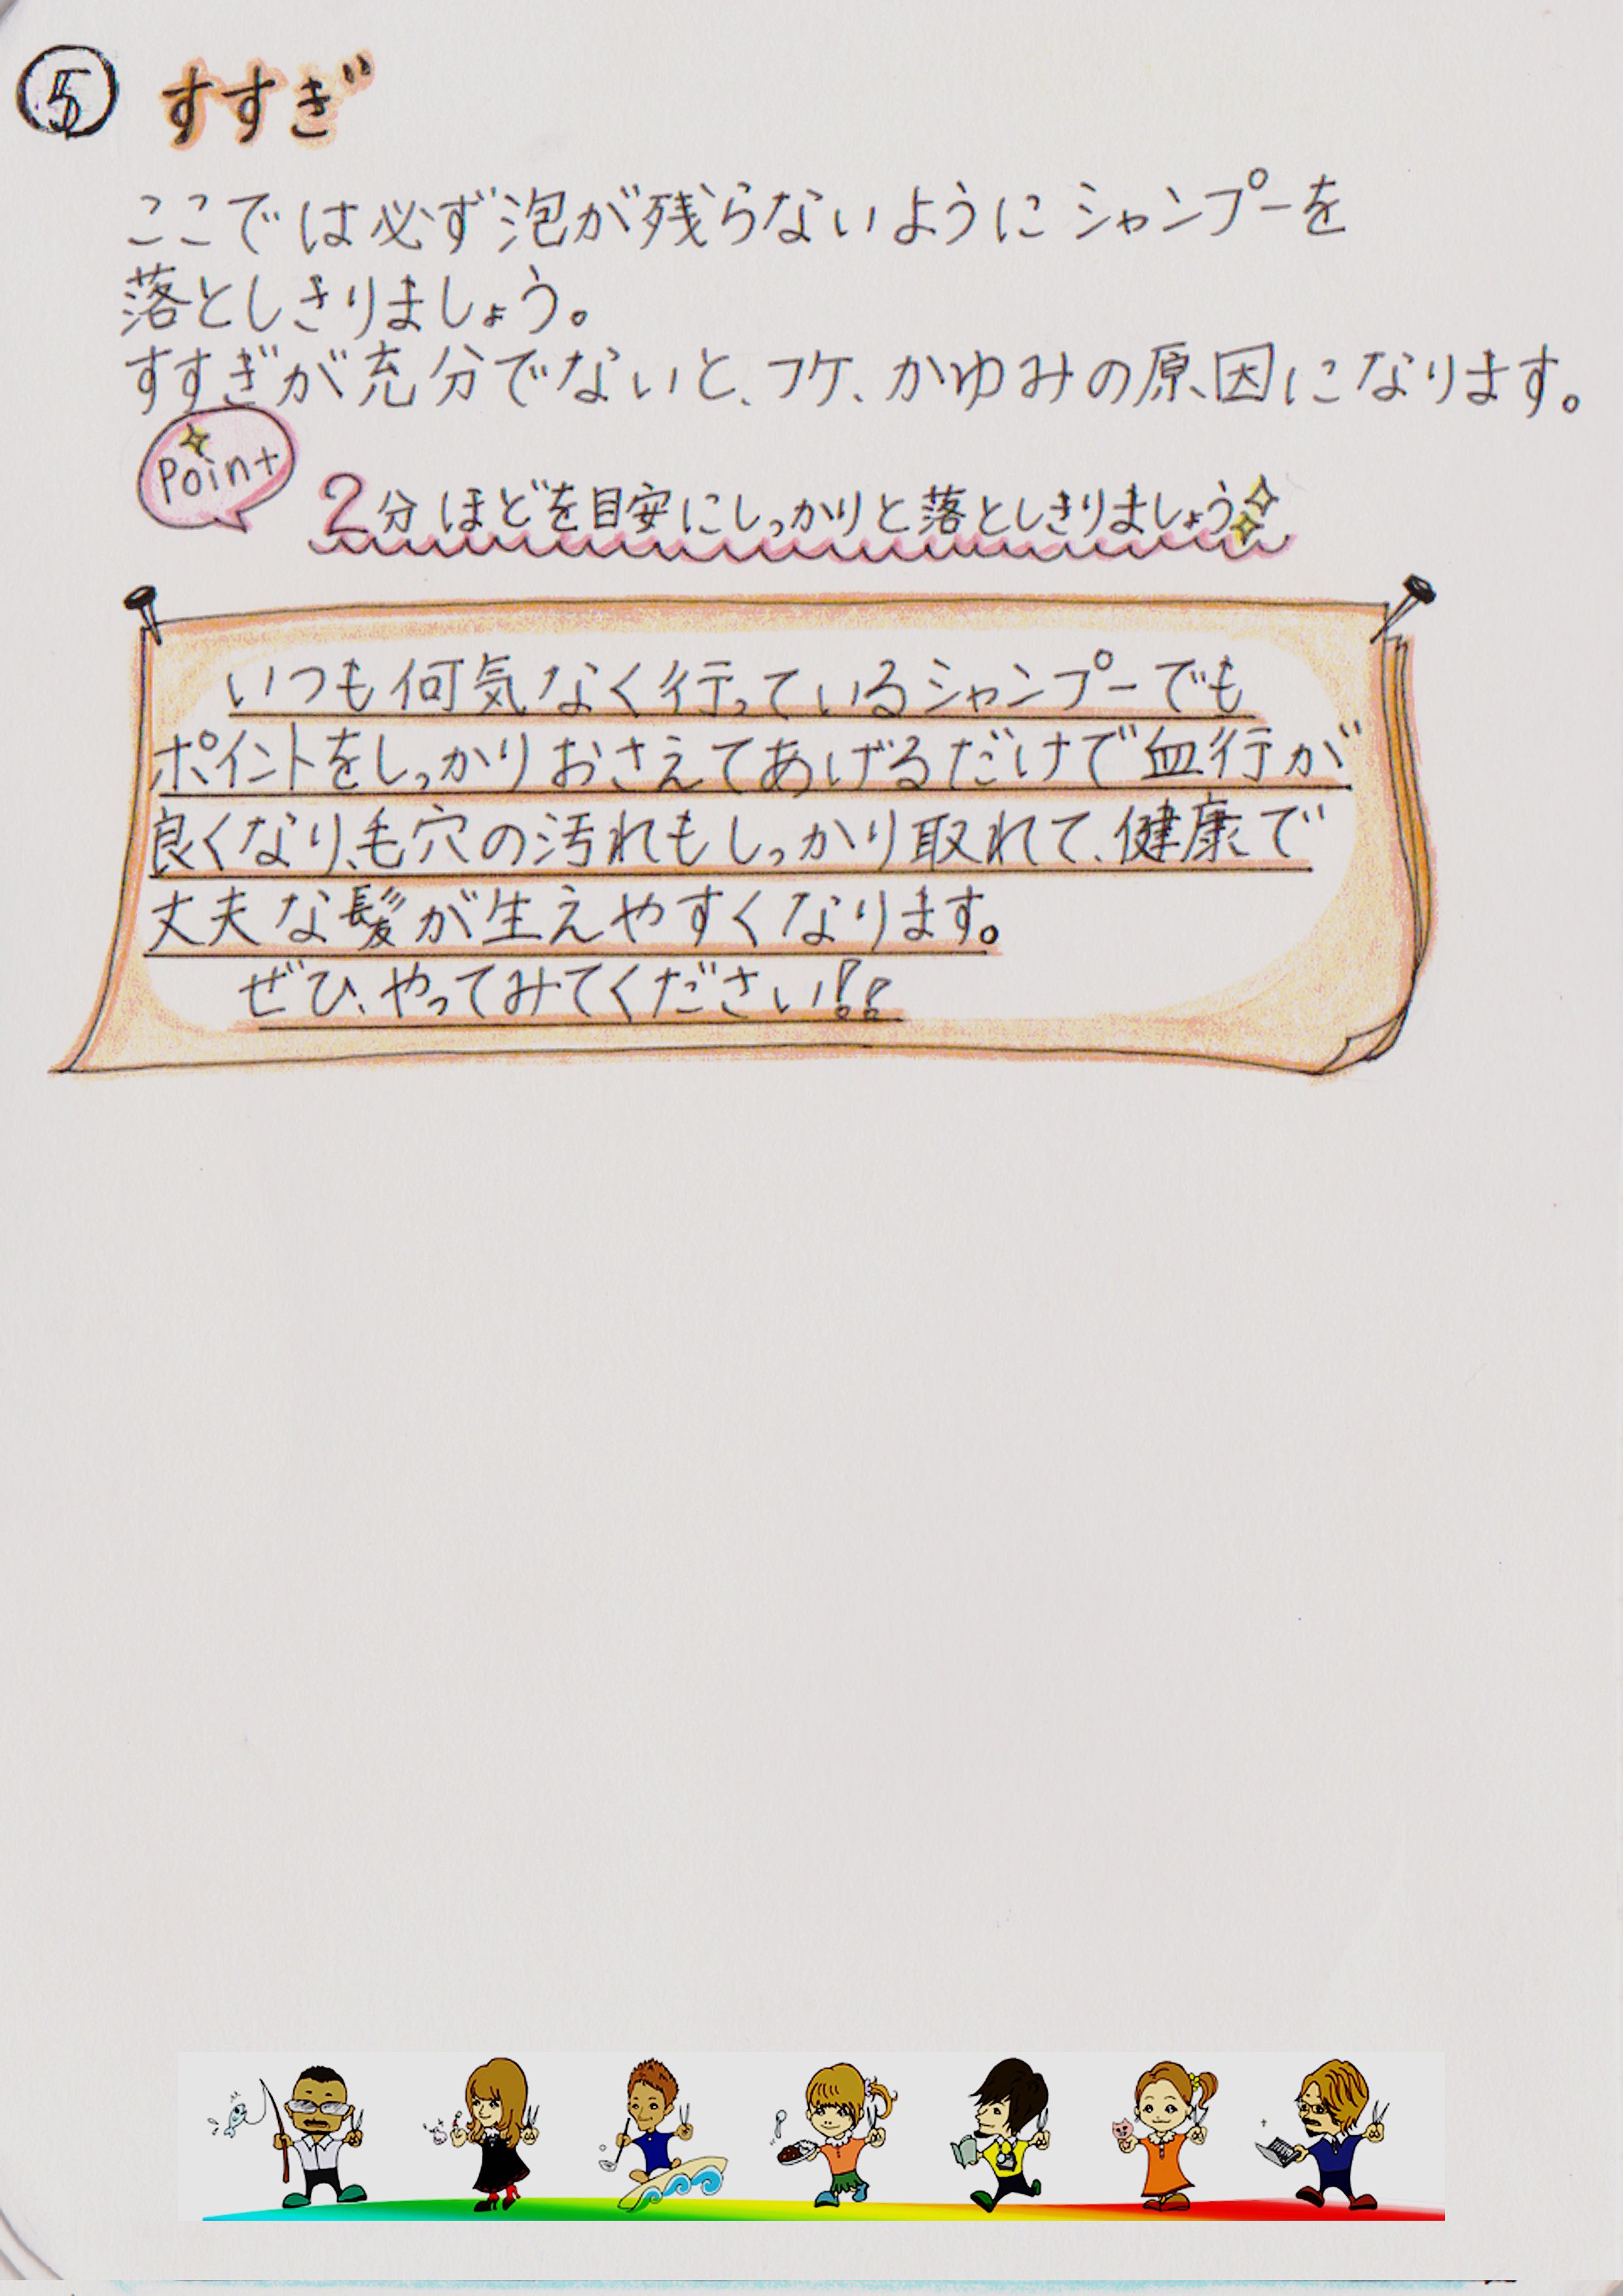 ⑤ すすぎ
ここでは必ず泡が残らないようにシャンプーを
落としきりましょう。
すすぎが充分でないと、フケ、かゆみの原因になります。
Point
2分ほどを目安にしっかりと落としきりましょう
いつも何気なく行っているシャンプーでも
ポイントをしっかりおさえてあげるだけで血行が
良くなり、毛穴の汚れもしっかり取れて、健康で
丈夫な髪が生えやすくなります。
ぜひ、やってみてください!!